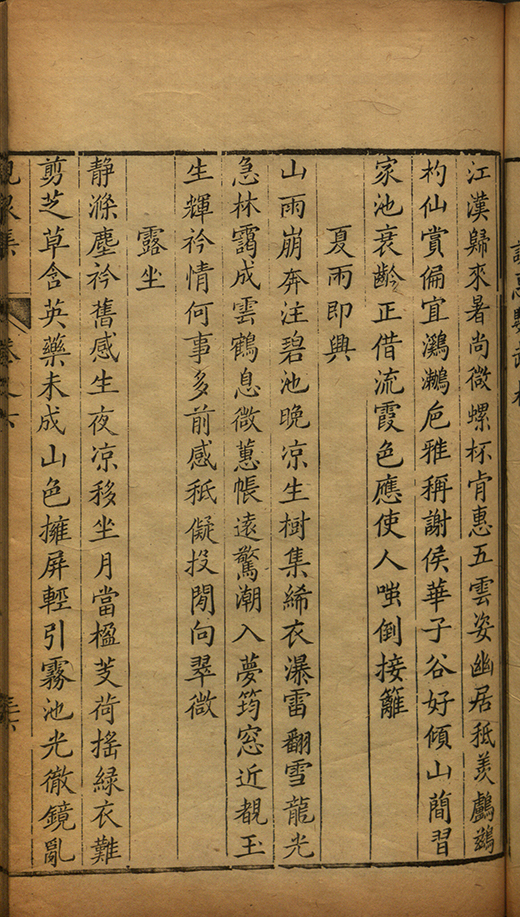 江漢歸來暑尚微螺杯肯惠五雲姿幽居秪羨鸕鷀
杓仙賞偏宜鸂鶒巵雅稱謝侯華子谷好傾山簡習
家池衰齡正借流霞色應使人嗤倒接籬
夏雨即興
山雨崩奔注碧池晚凉生樹集絺衣瀑雷翻雪龍光
急林靄成雲鶴息微蕙帳遠驚潮入夢筠窓近覩玉
生輝衿情何事多前感秪儗投閒向翠微
露坐
静滌塵衿舊感生夜凉移坐月當楹芰荷揺緑衣難
剪芝草含英藥未成山色擁屏輕引霧池光徹鏡亂